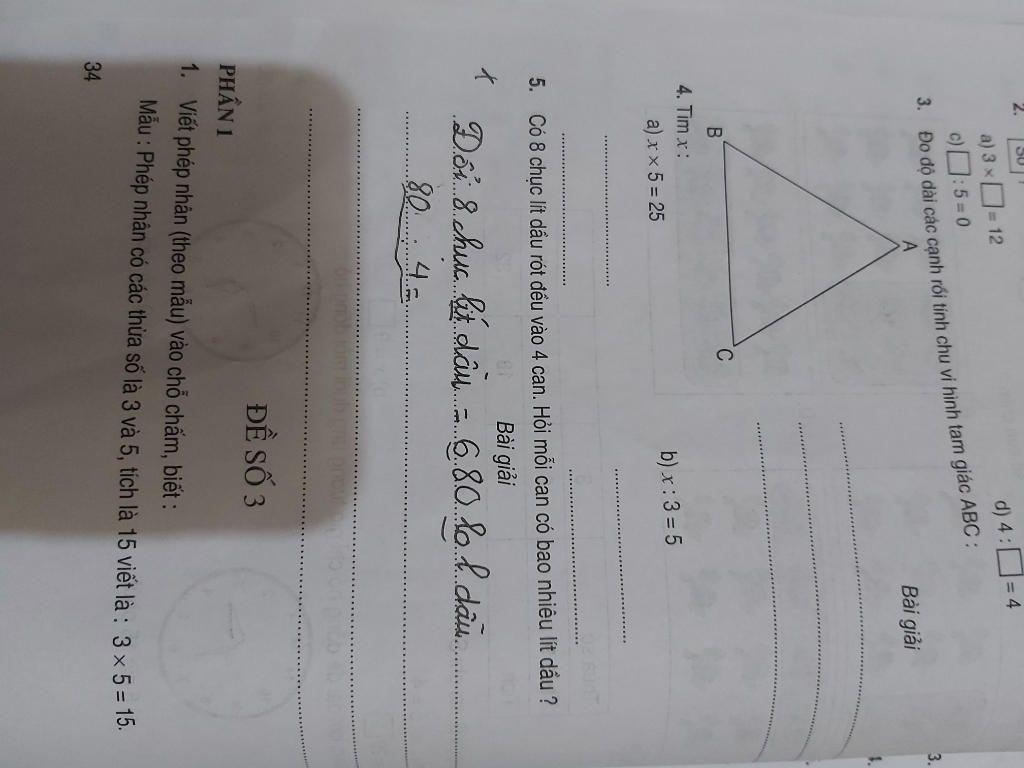 2. Số
a) 3 × □ = 12
d) 4 : □ = 4
c) □ : 5 = 0
3. Đo độ dài các cạnh rồi tính chu vi hình tam giác ABC :
Bài giải
A
B
C
4. Tìm x :
a) x × 5 = 25
b) x : 3 = 5
5. Có 8 chục lít dầu rót đều vào 4 can. Hỏi mỗi can có bao nhiêu lít dầu ?
Bài giải
Đổi: 8 chục lít dầu = 80 l dầu
80 : 4 =
ĐỀ SỐ 3
PHẦN 1
1. Viết phép nhân (theo mẫu) vào chỗ chấm, biết :
Mẫu : Phép nhân có các thừa số là 3 và 5, tích là 15 viết là : 3 × 5 = 15.
34
3.